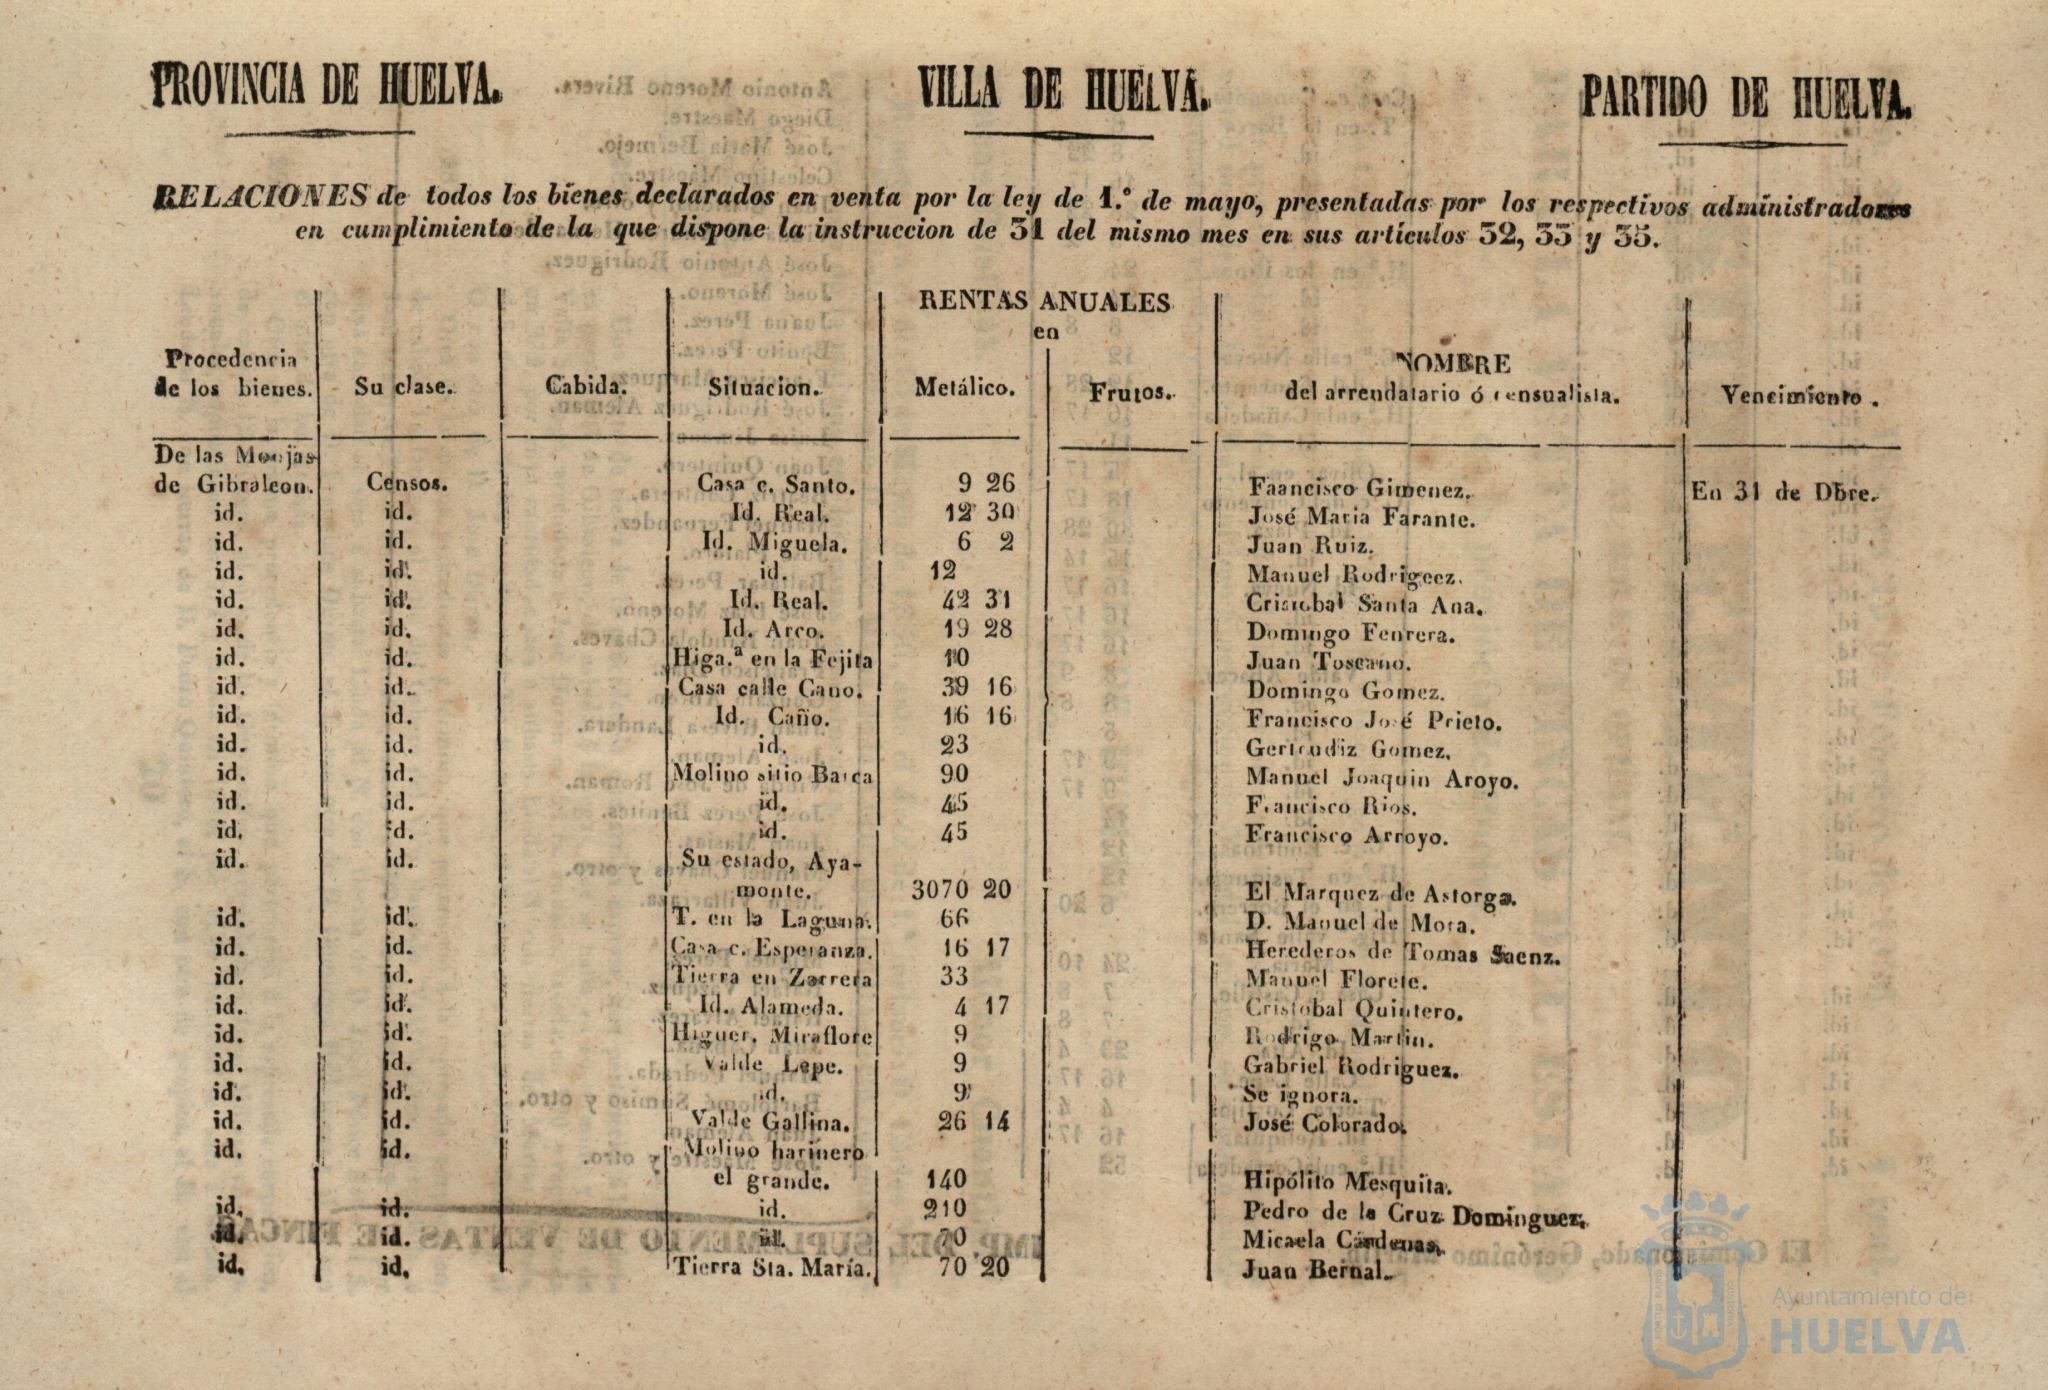 PROVINCIA DE HUELVA. VILLA DE HUELVA. PARTIDO DE HUELVA.
RELACIONES de todos los bienes declarados en venta por la ley de 1.° de mayo, presentadas por los respectivos administradores
en cumplimiento de la que dispone la instruccion de 31 del mismo mes en sus artículos 32, 33 y 35.
RENTAS ANUALES
en
Procedencia NOMBRE
de los bienes. Su clase. Cabida. Situacion. Metálico. Frutos. del arrendatario ó censualista. Vencimiento.
De las Monjas
de Gibraleon. Censos. Casa c. Santo. 9 26 Faancisco Gimenez. En 31 de Dbre.
id. id. Id. Real. 12 30 José Maria Farante.
id. id. Id. Miguela. 6 2 Juan Ruiz.
id. id. id. 12 Manuel Rodrigeez.
id. id. Id. Real. 42 31 Cristobal Santa Ana.
id. id. Id. Arco. 19 28 Domingo Fenrera.
id. id. Higa.ª en la Fejita 10 Juan Toscano.
id. id. Casa calle Cano. 39 16 Domingo Gomez.
id. id. Id. Caño. 16 16 Francisco José Prieto.
id. id. id. 23 Gertrudiz Gomez.
id. id. Molino sitio Barca 90 Manuel Joaquin Aroyo.
id. id. id. 45 Francisco Rios.
id. id. id. 45 Francisco Arroyo.
id. id. Su estado, Aya-
monte. 3070 20 El Marquez de Astorga.
id. id. T. en la Laguna. 66 D. Manuel de Mora.
id. id. Casa c. Esperanza. 16 17 Herederos de Tomas Saenz.
id. id. Tierra en Zorrera 33 Manuel Florete.
id. id. Id. Alameda. 4 17 Cristobal Quintero.
id. id. Higuer. Miraflore 9 Rodrigo Martin.
id. id. Valde Lepe. 9 Gabriel Rodriguez.
id. id. id. 9 Se ignora.
id. id. Valde Gallina. 26 14 José Colorado.
id. id. Molino harinero
el grande. 140 Hipólito Mesquita.
id. id. id. 210 Pedro de la Cruz Dominguez.
id. id. id. 70 Micaela Cárdenas.
id. id. Tierra Sta. María. 70 20 Juan Bernal.
Ayuntamiento de
HUELVA